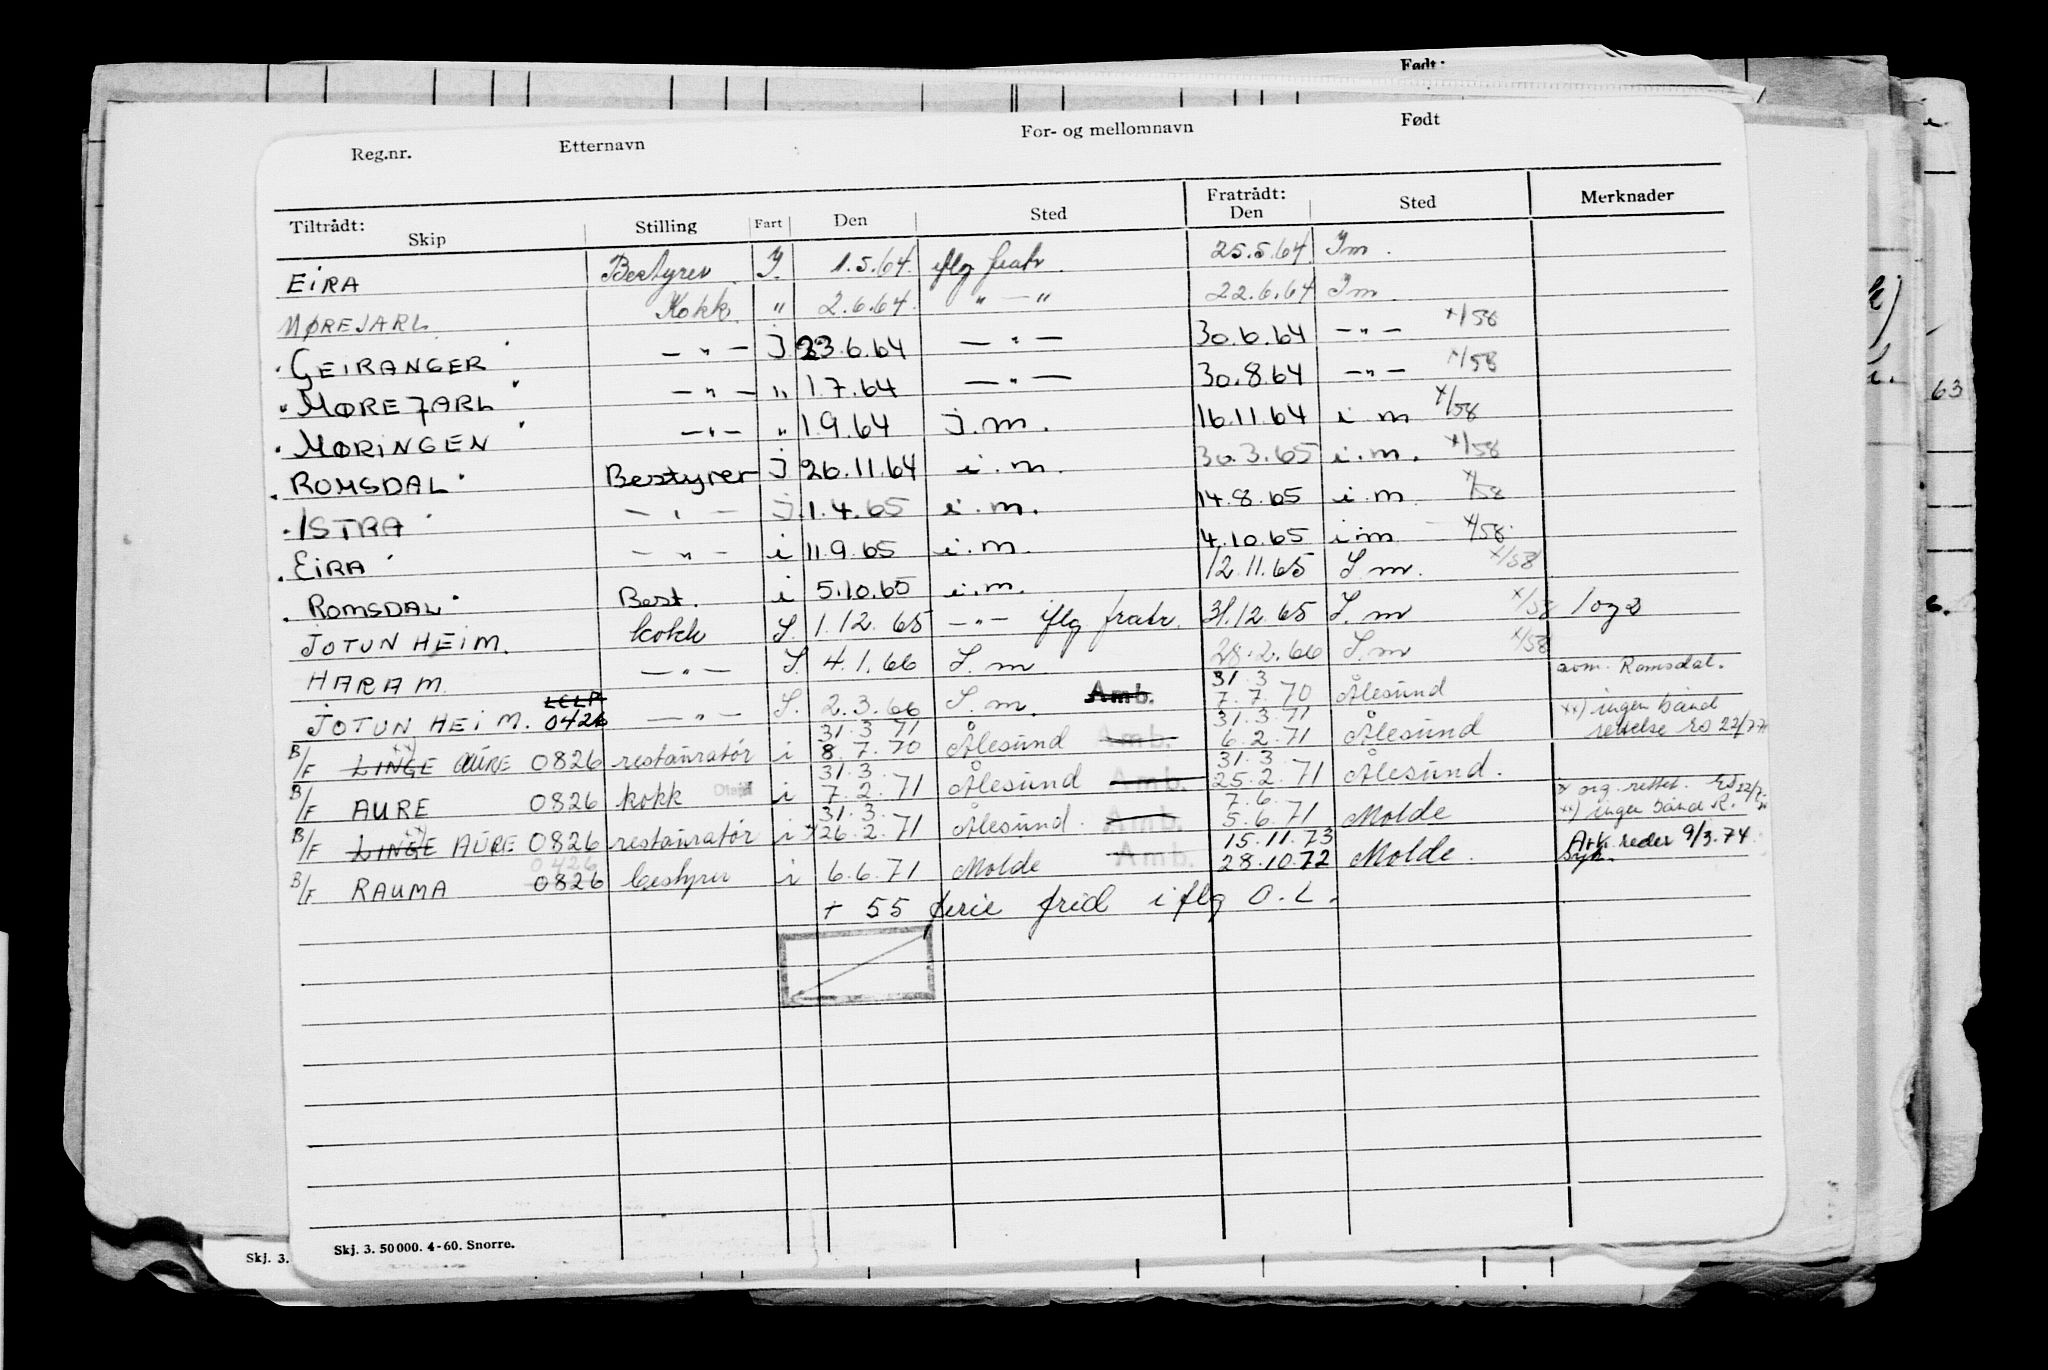 Født:
Reg.nr. Etternavn For- og mellomnavn Født
Tiltrådt: Fratrådt:
Skip Stilling Fart Den Sted Den Sted Merknader
EIRA Bestyrer J. 1.5.64. iflg fratr. 25.5.64 Im.
MØREJARL Kokk. " 2.6.64. " — " 22.6.64 Im.
GEIRANGER — " — J 23.6.64 — " — 30.6.64 — " — x/58
MØREJARL — " — " 1.7.64 — " — 30.8.64 — " — x/58
MØRINGEN — " — " 1.9.64 J.m. 16.11.64 i m x/58
ROMSDAL Bestyrer J 26.11.64 i.m. 30.3.65 i.m. x/58
ISTRA — " — J. 1.4.65 i.m. 14.8.65 i m x/58
EIRA — " — i 11.9.65 i.m. 4.10.65 i m x/58
ROMSDAL Best. i 5.10.65 i.m. 12.11.65 S.m. x/58
JOTUNHEIM. kokk S. 1.12.65 — " — iflg fratr. 31.12.65 S.m x/58 1 og 2
HARAM — " — S. 4.1.66 S.m 28.2.66 S.m x/58
LCLP 31.3 Romsdal.
JOTUNHEIM. 0426 — " — S. 2.3.66 S.m. Amb. 7.7.70 Ålesund
31.3 71 31.3.71 xx) ingen bånd
B/F LINGE AURE 0826 restauratør i 8.7.70 Ålesund Amb. 6.2.71 Ålesund 22/7 77
31.3. 31.3
B/F AURE 0826 kokk i 7.2.71 Ålesund Amb. 25.2.71 Ålesund.
31.3. 7.6. x org. rettet.
B/F LINGE AURE 0826 restauratør i x 26.2.71 Ålesund. Amb. 5.6.71 Molde xx) ingen bånd R.
0426 15.11.73 Ark reder 9/3.74
B/F RAUMA 0826 bestyrer i 6.6.71 Molde Amb. 28.10.72 Molde. Syk.
+ 55 ferie frid iflg O.L.
Skj. 3. 50 000. 4-60. Snorre.
Skj. 3.
63